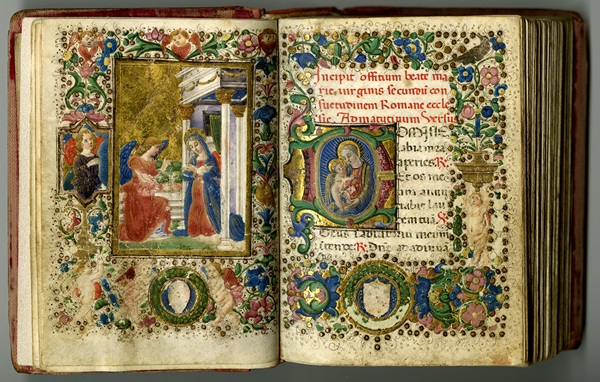 Incipit offitium beate ma
rie virginis secundū con
suetudinem Romane eccle
sie. Ad matutinum Versus
DOMINE
labia mea
aperies. R.
Et os me
um annū
tiabit lau
dem tuā. V.
Deus in adiutorium meum
intende. R. Dñe ad adiuvā